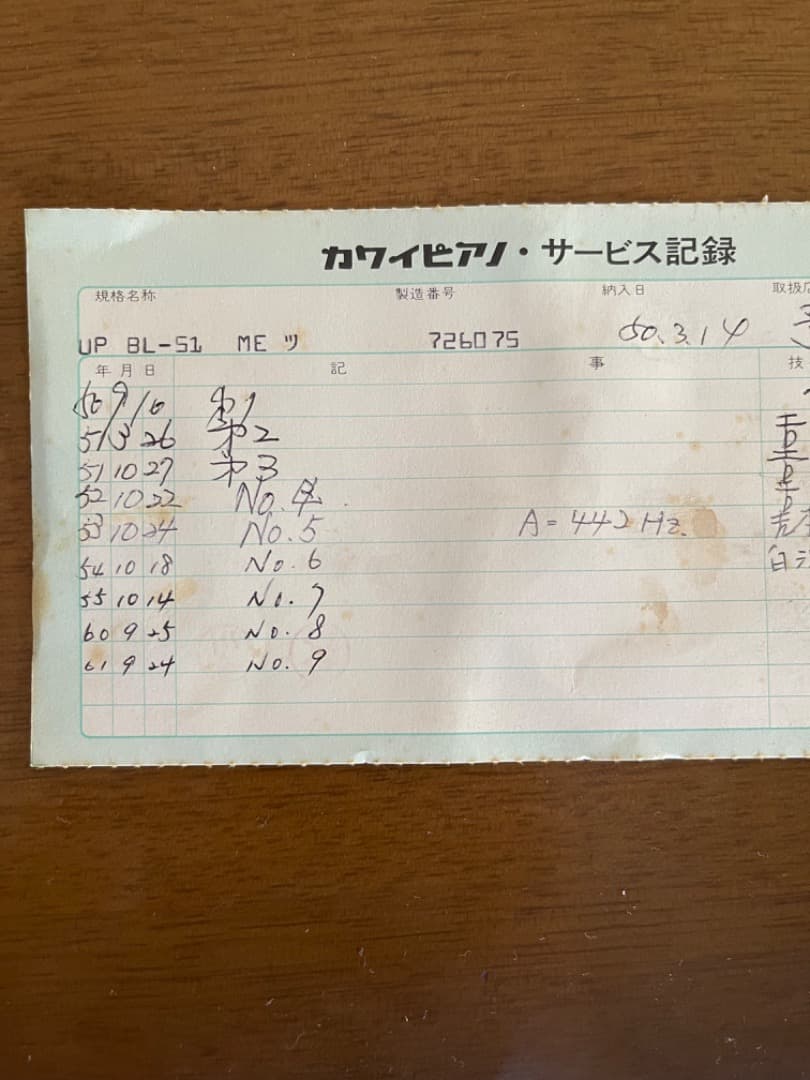 カワイピアノ・サービス記録
規格名称 製造番号 納入日 取扱店
UP BL-51 MEツ 726075 50.3.14
年 月 日 記 事 技
50 9 16 第1
51 3 26 第2
51 10 27 第3
52 10 22 No.4
53 10 24 No.5 A=442Hz.
54 10 18 No.6
55 10 14 No.7
60 9 25 No.8
61 9 24 No.9